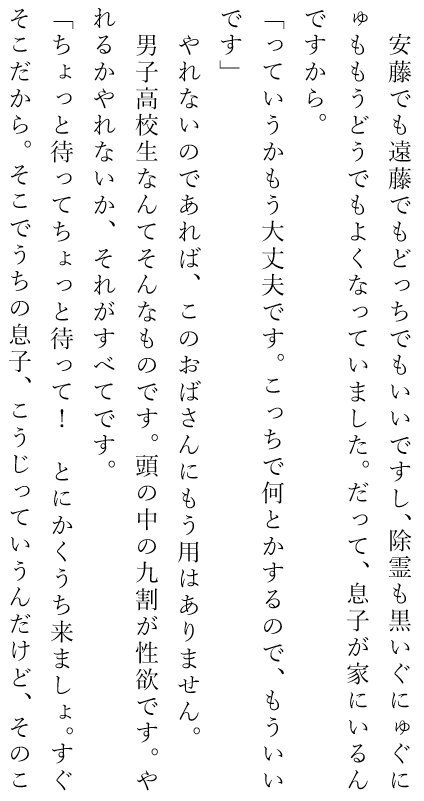 安藤でも遠藤でもどっちでもいいですし、除霊も黒いぐにゅぐに
ゅももうどうでもよくなっていました。だって、息子が家にいるん
ですから。
「っていうかもう大丈夫です。こっちで何とかするので、もういい
です」
　やれないのであれば、このおばさんにもう用はありません。
　男子高校生なんてそんなものです。頭の中の九割が性欲です。や
れるかやれないか、それがすべてです。
「ちょっと待ってちょっと待って！　とにかくうち来ましょ。すぐ
そこだから。そこでうちの息子、こうじっていうんだけど、そのこ